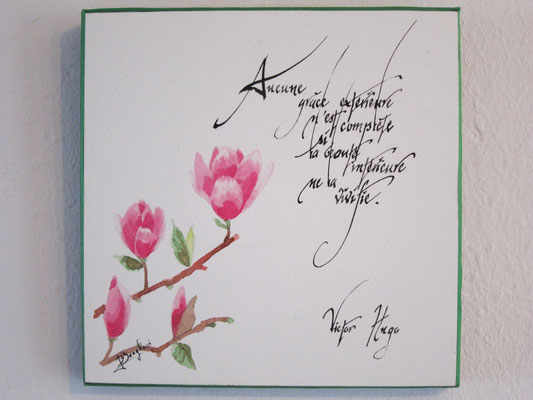 Aucune
grâce extérieure
n'est complète
si
la beauté
intérieure
ne la
vivifie.
Victor Hugo